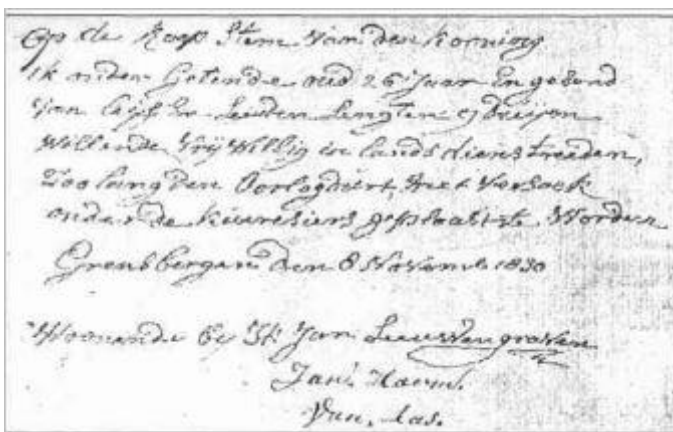 Op de Roep Stem van den Koening
ik onder Getende oud 26 Jaar En gesond
van lijf En Leeden
Willende Vrij Willig in lands dienst treeden,
Zoo lang den Oorlog duert, met Versoek
onder de kieuresiers geplaatst te Worden
den 8 Novemb 1830
Woonende by St Jan Leeuwengraven
Jan Harm
Van, Las.